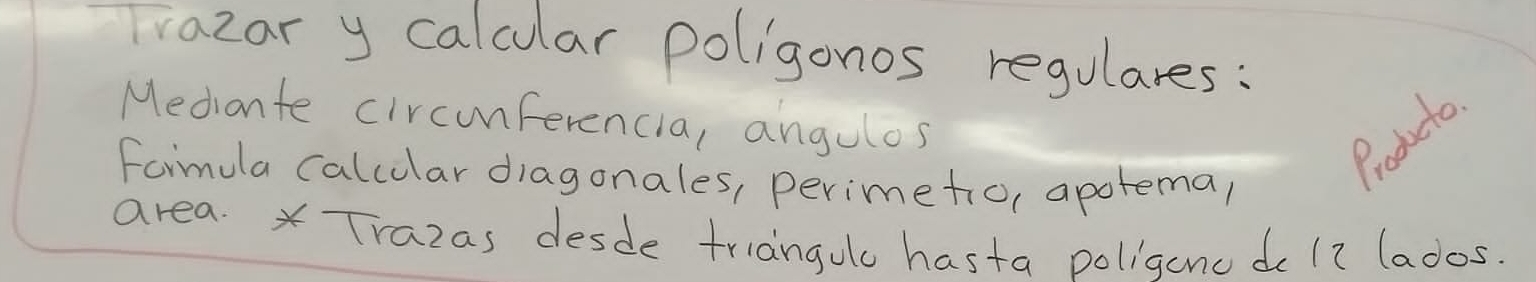 Trazar y calcular polígonos regulares:
Mediante circunferencia, ángulos
Formula calcular diagonales, perimetro, apotema,
area. * Trazas desde triángulo hasta polígono de 12 lados.
Producto.